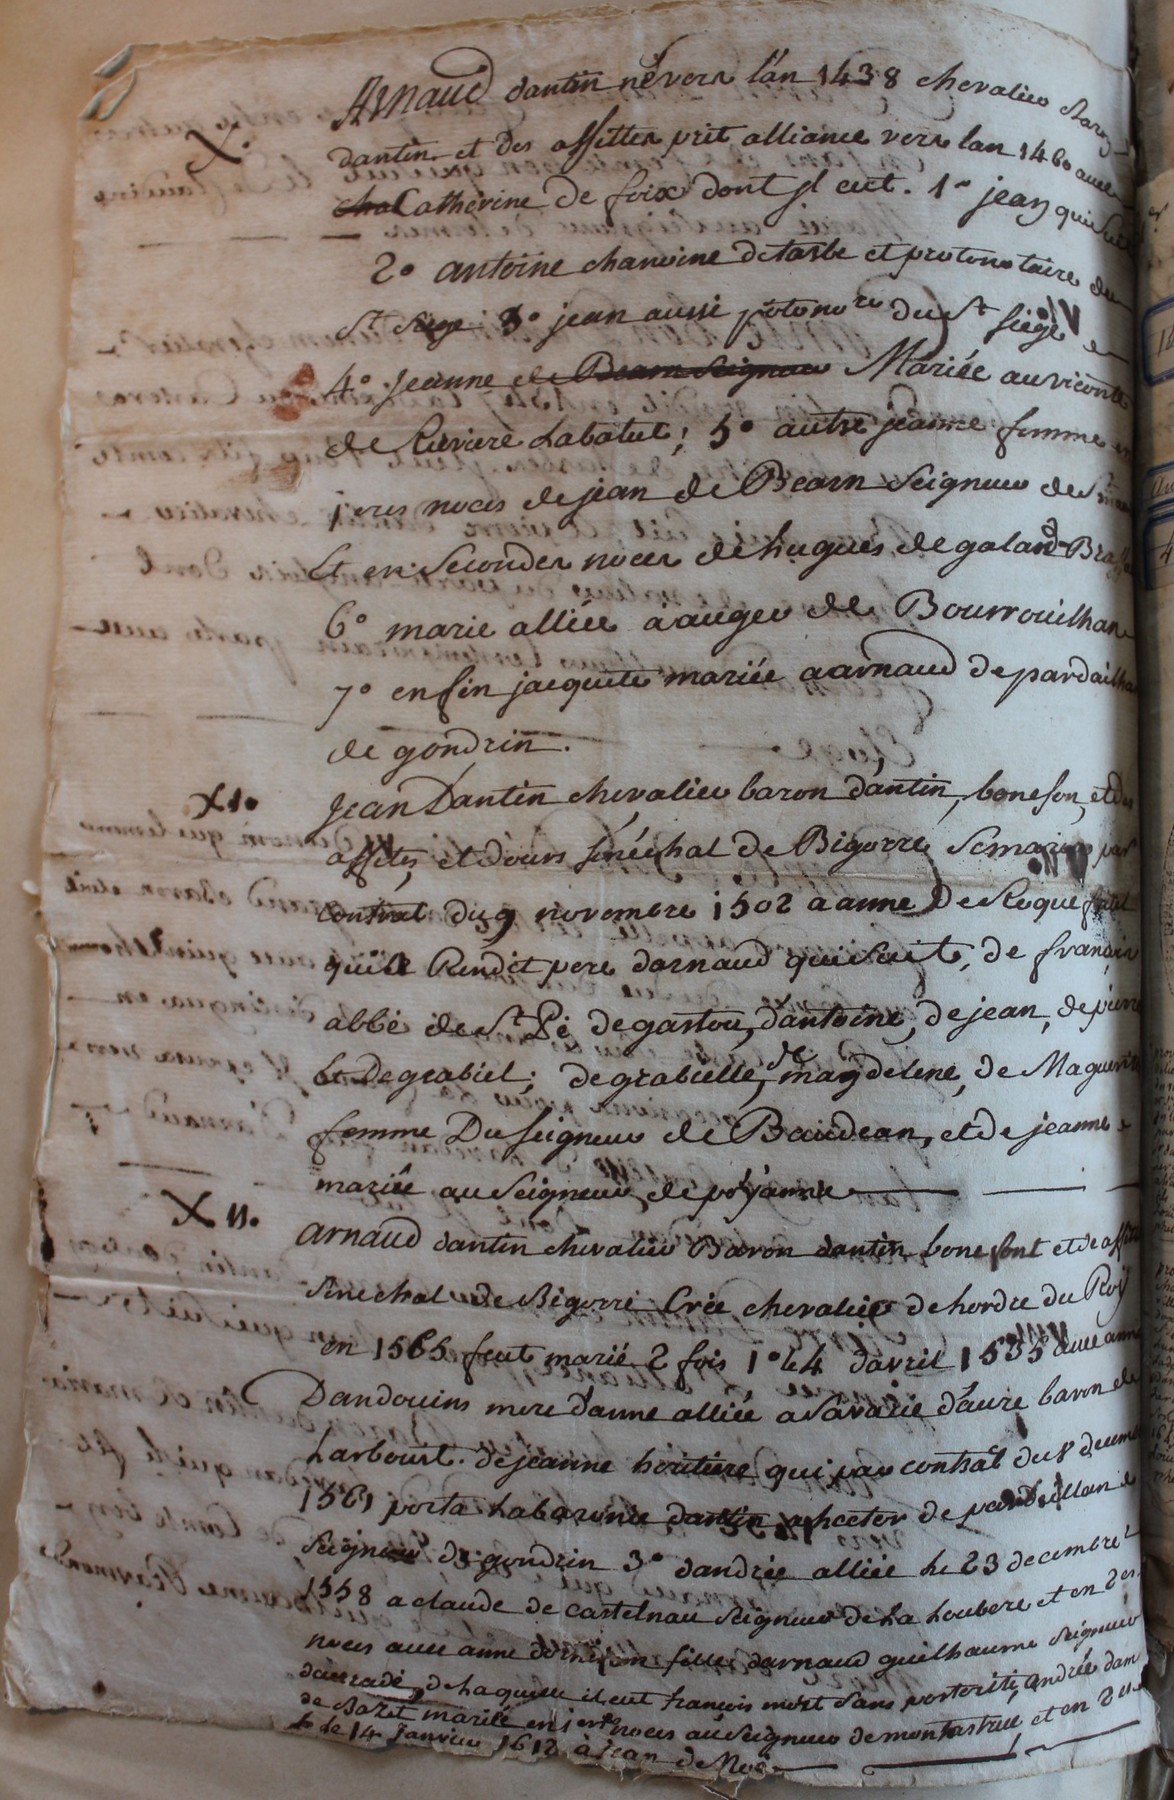 Arnaud dantin né vers l'an 1438 chevalier Baron
X. dantin et des affittes prit alliance vers lan 1460 avec
Catherine de foix dont jl eut. 1° jean qui suit
2° antoine chanoine de tarbe et protonotaire du
St siege 3° jean aussi protonore du St siege
4° jeanne de Bearn Seigneur Mariée au viconte
de Riviere Labatut; 5° autre jeanne femme en
1eres noces de jean de Bearn Seigneur de
Et en Secondes noces de hugues de galard
6° marie alliée a auger de Bourrouilhan
7° enfin jacquete mariée a arnaud de pardailhan
de gondrin.
XI. Jean D'antin chevalier baron d'antin, bonefon, et des
affites, et d'ours sénéchal de Bigorre Se maria par
contrat du 9 novembre 1502 a anne De Roquefeuil
qui le Rendit pere darnaud qui suit, de françois
abbé de St Pé de gaston, d'antoine, de jean, de pierre
Et de grabiel; de grabielle, de magdelene, de Maguerite
femme Du seigneur de Baudean, et de jeanne
mariée au Seigneur de poyanne
XII. Arnaud dantin chevalier Baron dantin bonefont et de affites
Senechal de Bigorre Crée chevalier de hordre du Roy
en 1565 feut marié 2 fois 1° le 4 davril 1535 avec anne
Dandouins mere d'anne alliée a Savarie d'aure baron de
Larboust. de jeanne héritiere qui par contrat du 8
1561 porta La baronie dantin a hector de pardaillan
Seigneur de gondrin 3° dandrée alliée le 23 decembre
1558 a claude de castelnau Seigneur de La Loubere et en 2es
noces avec anne dornezan fille darnaud guilhaume Seigneur
dauradé, de Laquelle il eut françois mort Sans posterité, andrée dame
de mariée en 1eres noces au Seigneur de montastruc et en 2es
le 14 janvier 1612 à jean de Noé